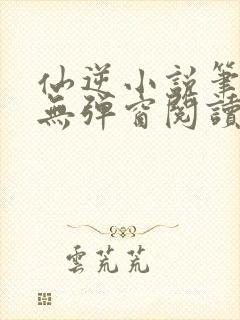 仙逆小說筆
無彈窗閱讀
雲芃芃